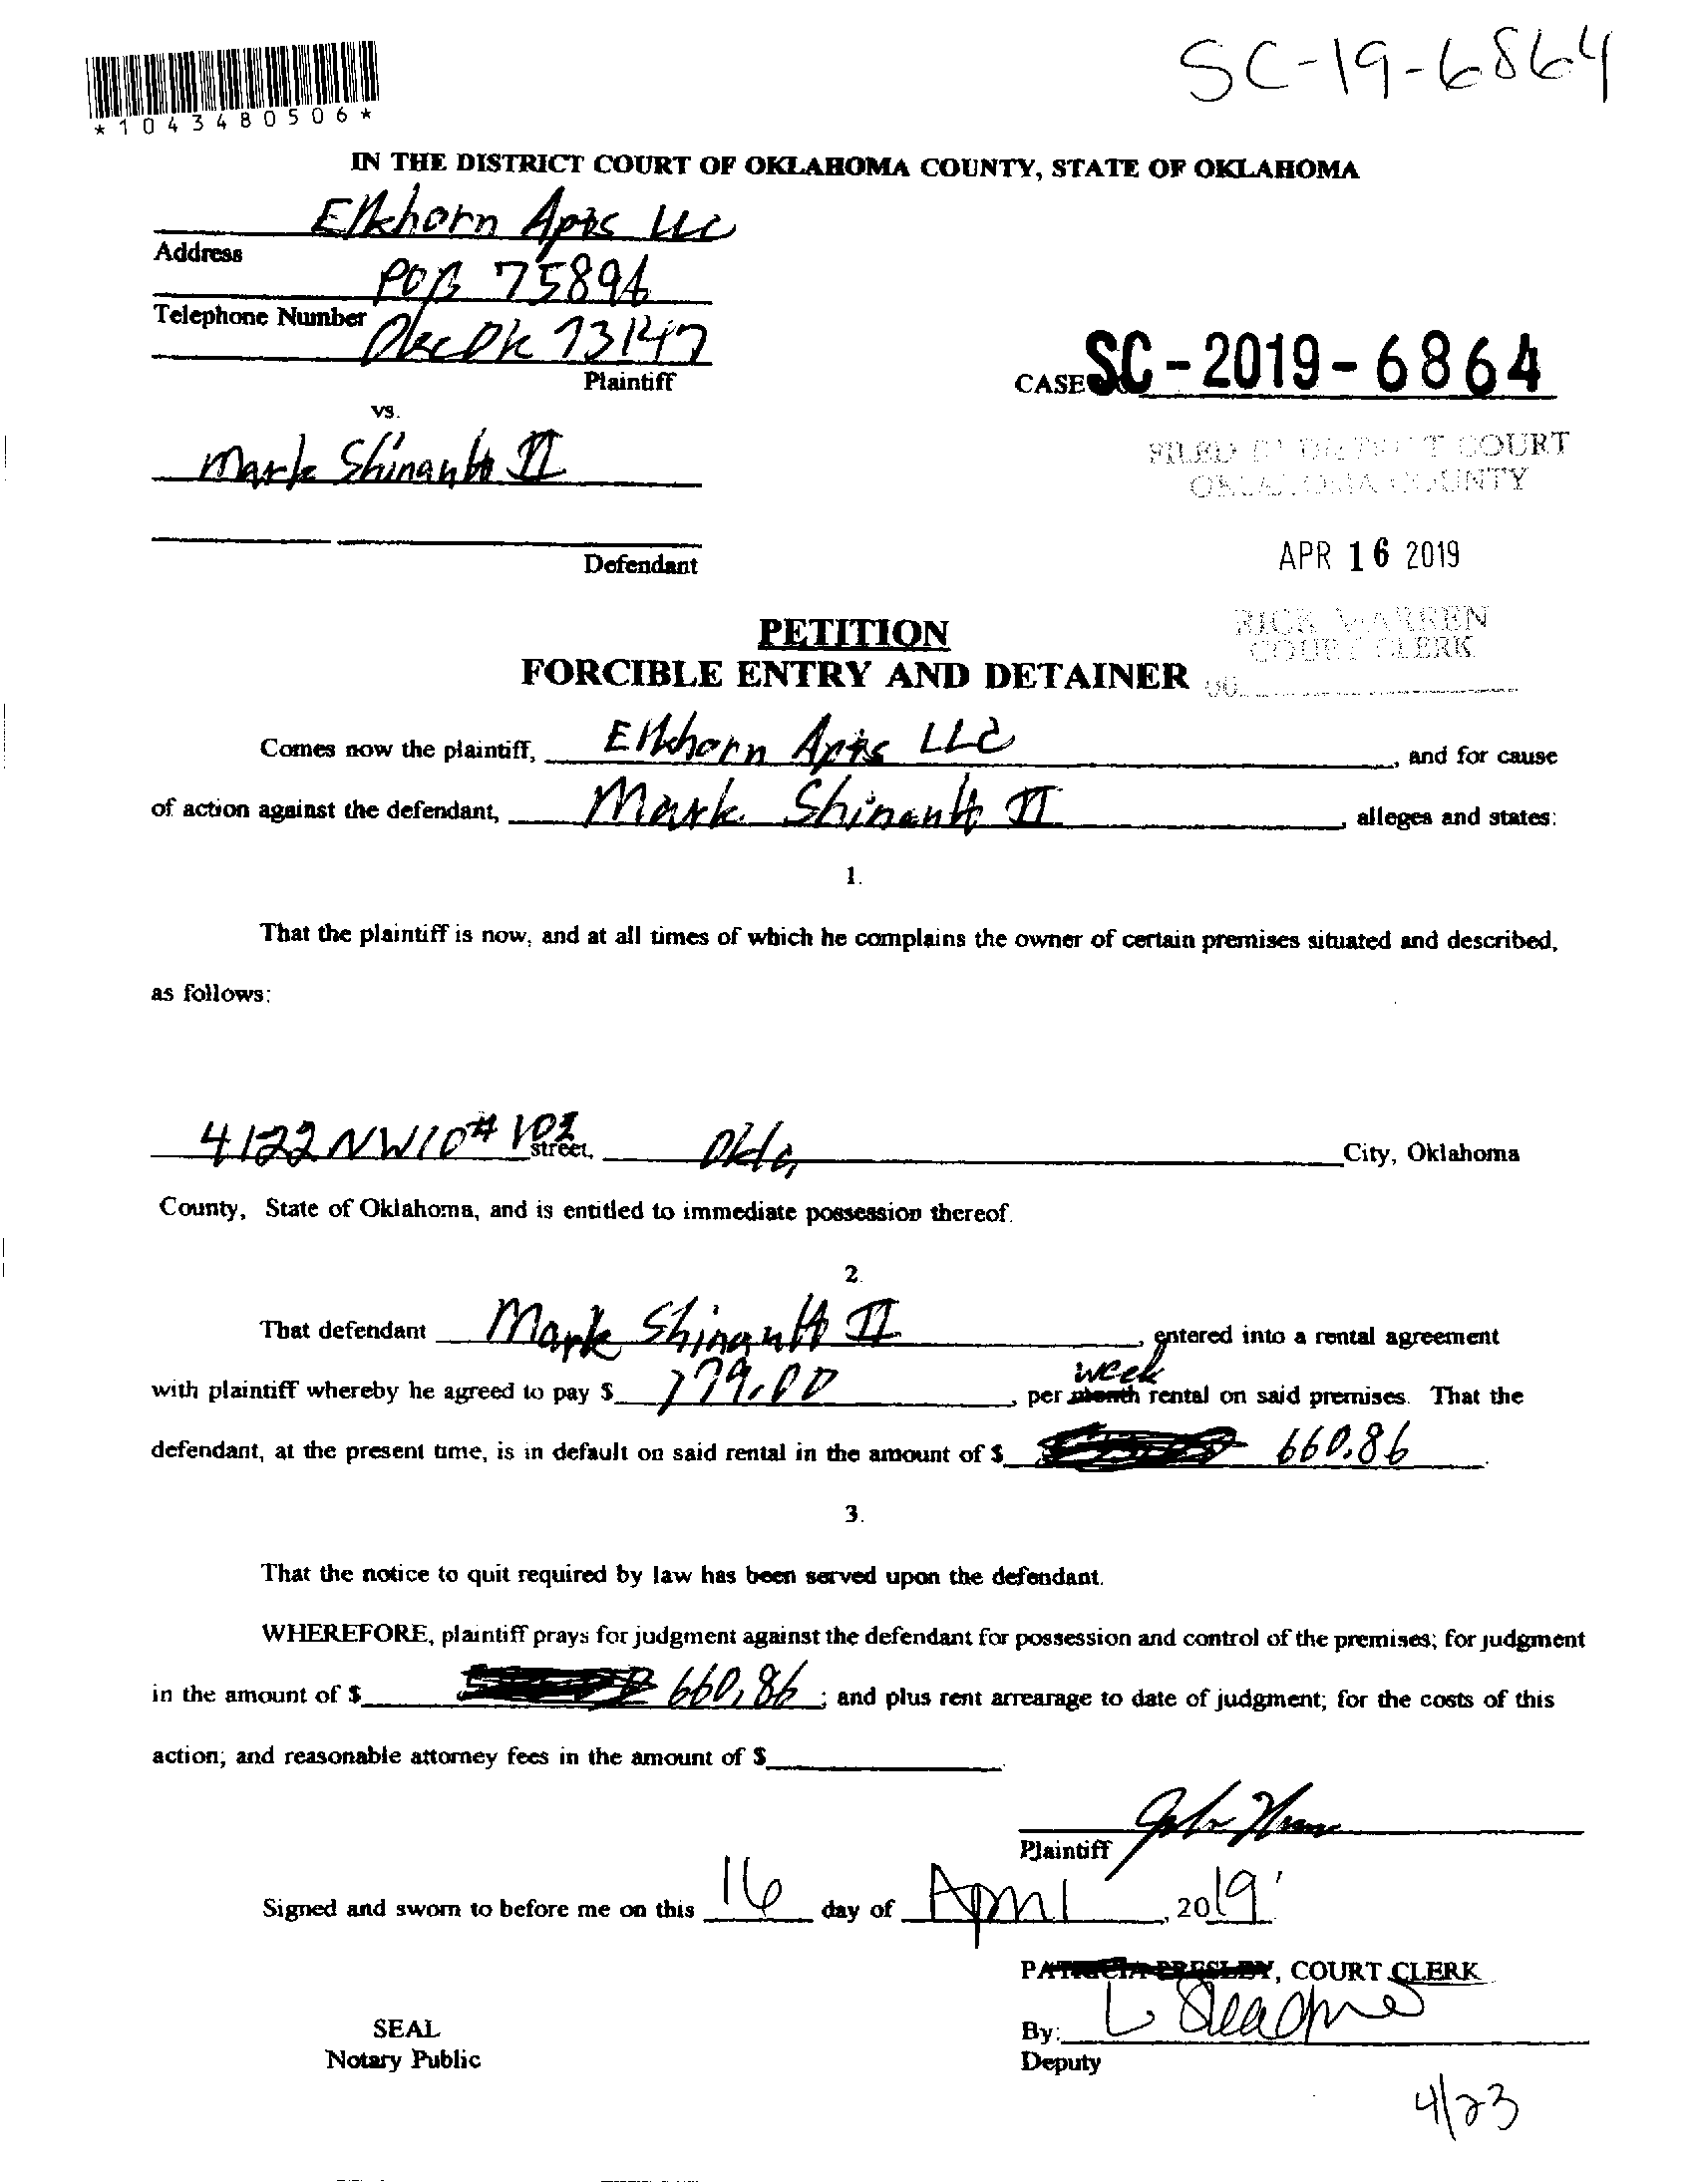 SC-19-6864
*1043480506*
IN THE DISTRICT COURT OF OKLAHOMA COUNTY, STATE OF OKLAHOMA
Elkhorn Apts LLC
Address
POB 75894
Telephone Number
OKC OK 73147
Plaintiff
CASE SC-2019-6864
vs.
Mark Shinault II
FILED IN DISTRICT COURT
OKLAHOMA COUNTY
Defendant
APR 16 2019
PETITION
RICK WARREN
COURT CLERK
FORCIBLE ENTRY AND DETAINER
Comes now the plaintiff, Elkhorn Apts LLC, and for cause
of action against the defendant, Mark Shinault II, alleges and states:
1.
That the plaintiff is now, and at all times of which he complains the owner of certain premises situated and described,
as follows:
4122 NW 10 # street, Okla, City, Oklahoma
County, State of Oklahoma, and is entitled to immediate possession thereof.
2.
That defendant Mark Shinault II, entered into a rental agreement
week
with plaintiff whereby he agreed to pay $ 179.00, per month rental on said premises. That the
defendant, at the present time, is in default on said rental in the amount of $ 660.86.
3.
That the notice to quit required by law has been served upon the defendant.
WHEREFORE, plaintiff prays for judgment against the defendant for possession and control of the premises; for judgment
in the amount of $ 660.86; and plus rent arrearage to date of judgment; for the costs of this
action; and reasonable attorney fees in the amount of $
Plaintiff
Signed and sworn to before me on this 16 day of April, 2019
PATRICIA PRESLEY, COURT CLERK
SEAL
By:
Notary Public
Deputy
4/23